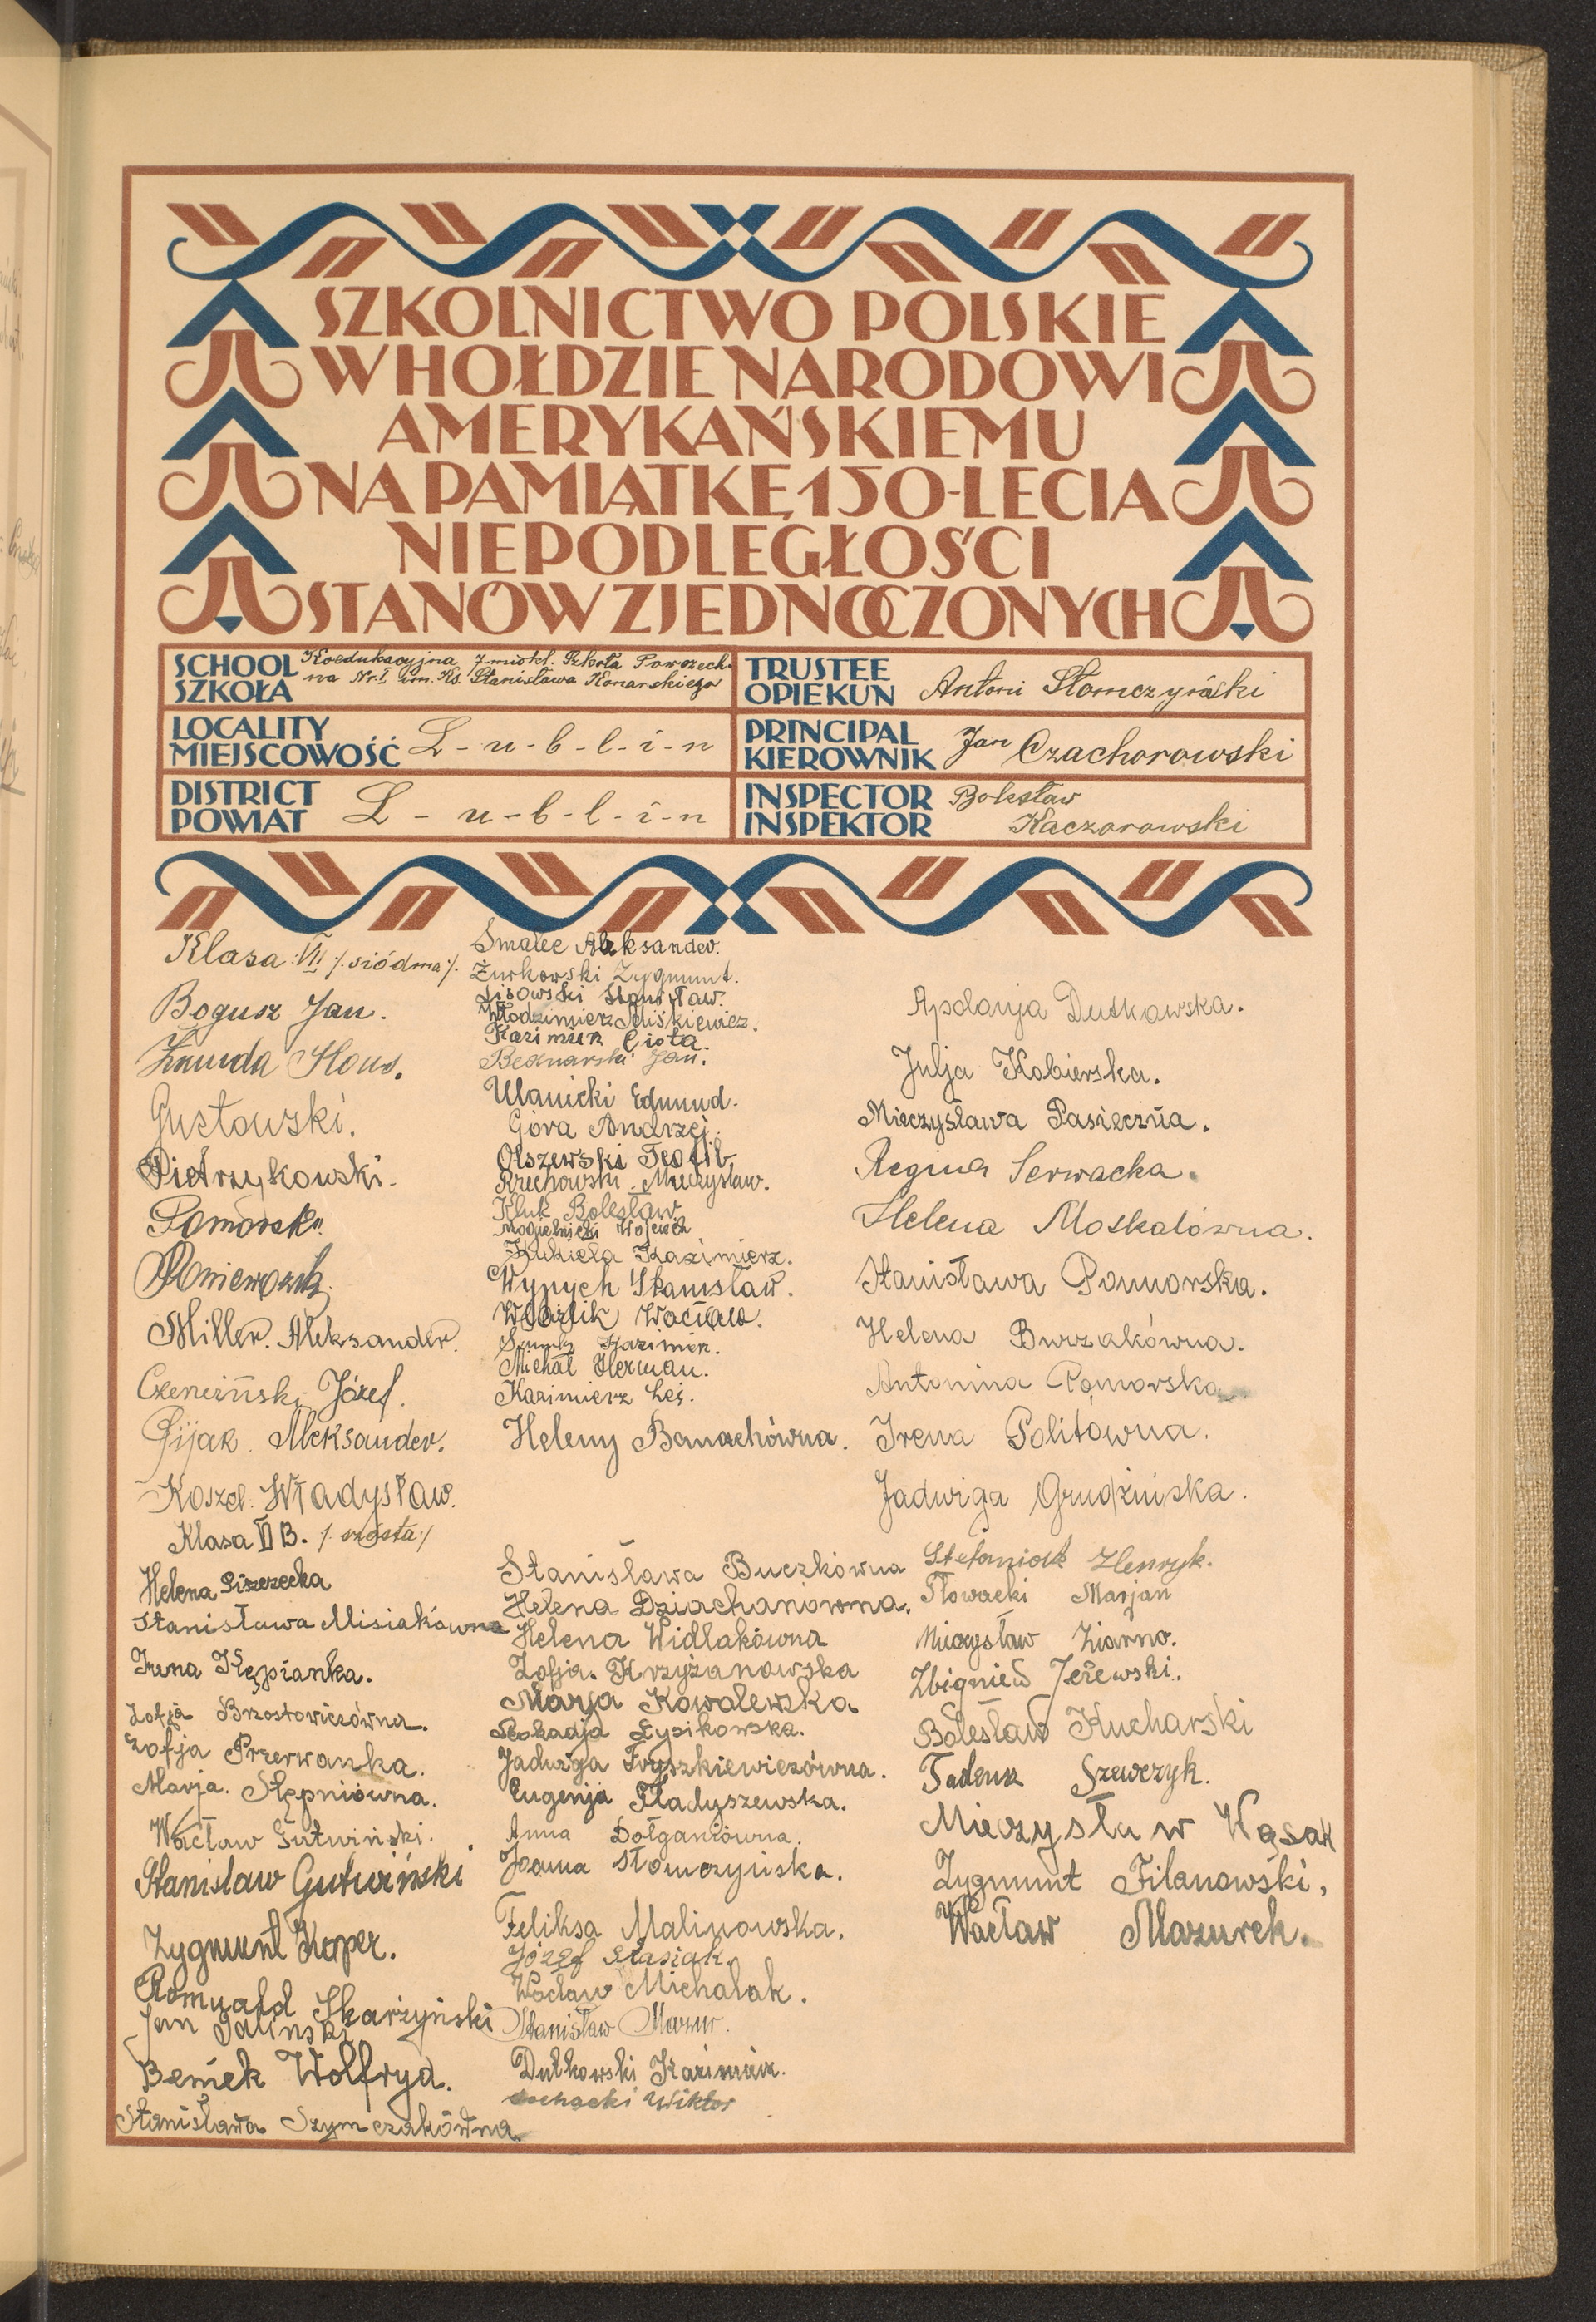 SZKOLNICTWO POLSKIE
W HOŁDZIE NARODOWI
AMERYKAŃSKIEMU
NA PAMIĄTKĘ 150-LECIA
NIEPODLEGŁOŚCI
STANÓW ZJEDNOCZONYCH
SCHOOL
SZKOŁA
Koedukacyjna 7-miokl. Szkoła Powszech-
na Nr. 1. im. Ks. Stanisława Konarskiego
TRUSTEE
OPIEKUN
Antoni Słomczyński
LOCALITY
MIEJSCOWOŚĆ
L-u-b-l-i-n
PRINCIPAL
KIEROWNIK
Jan Czachorowski
DISTRICT
POWIAT
L-u-b-l-i-n
INSPECTOR
INSPEKTOR
Bolesław
Kaczorowski
Klasa VII /. siódma /.
Bogusz Jan.
Żmuda
Gustowski.
Pietrzykowski.
Pomorski.
Miller. Aleksander.
Czemiński Józef.
Gijak. Aleksander.
Koszel. Władysław.
Smalec Aleksander.
Żurkowski Zygmunt.
Lisowski Stanisław.
Włodzimierz Miśkiewicz.
Kazimierz Ciota.
Bednarski Jan.
Ulanicki Edmund.
Góra Andrzej.
Olszewski Teofil
Rzechowski Mieczysław.
Kluk Bolesław
Mogielnicki Wojciech
Kukieła Kazimierz.
Wypych Stanisław.
Wacław.
Kazimierz.
Michał Herman.
Kazimierz Łeś.
Heleny Banachówna.
Apolonja Dutkowska.
Julja Kobierska.
Mieczysława Pasieczna.
Regina Serwacka.
Helena Moskalówna.
Stanisława Pomorska.
Helena Burzakówna.
Antonina Pomorska
Irena Politówna.
Jadwiga Grudzińska.
Klasa VI B. /. szósta /
Helena Siszecka
Stanisława Misiakówna
Irena Kępianka.
Zofja Brzostowiczówna.
Zofja Przerwanka.
Marja. Stępniówna.
Wacław Gutwiński.
Stanisław Gutwiński
Zygmunt Koper.
Romuald Skarżyński
Jan Galiński
Beniek Wolfryd.
Stanisława Szymczakówna.
Stanisława Buczkówna
Helena Dziachanówna.
Helena Widlakówna
Zofja. Krzyżanowska
Marja Kowalewska
Leokadja Łysikowska.
Jadwiga Fryszkiewiczówna.
Eugenja Władyszewska.
Anna Dołganiówna.
Joanna Słomczyńska.
Feliksa Malinowska.
Józef Stasiak.
Wacław Michalak.
Stanisław Mazur.
Dutkowski Kazimierz.
Sochacki Wiktor
Stefaniak Henryk.
Słowacki Marjan
Mieczysław Ziarno.
Zbigniew Jeżewski.
Bolesław Kucharski
Tadeusz Szewczyk.
Mieczysław Wąsak
Zygmunt Filanowski,
Wacław Mazurek.